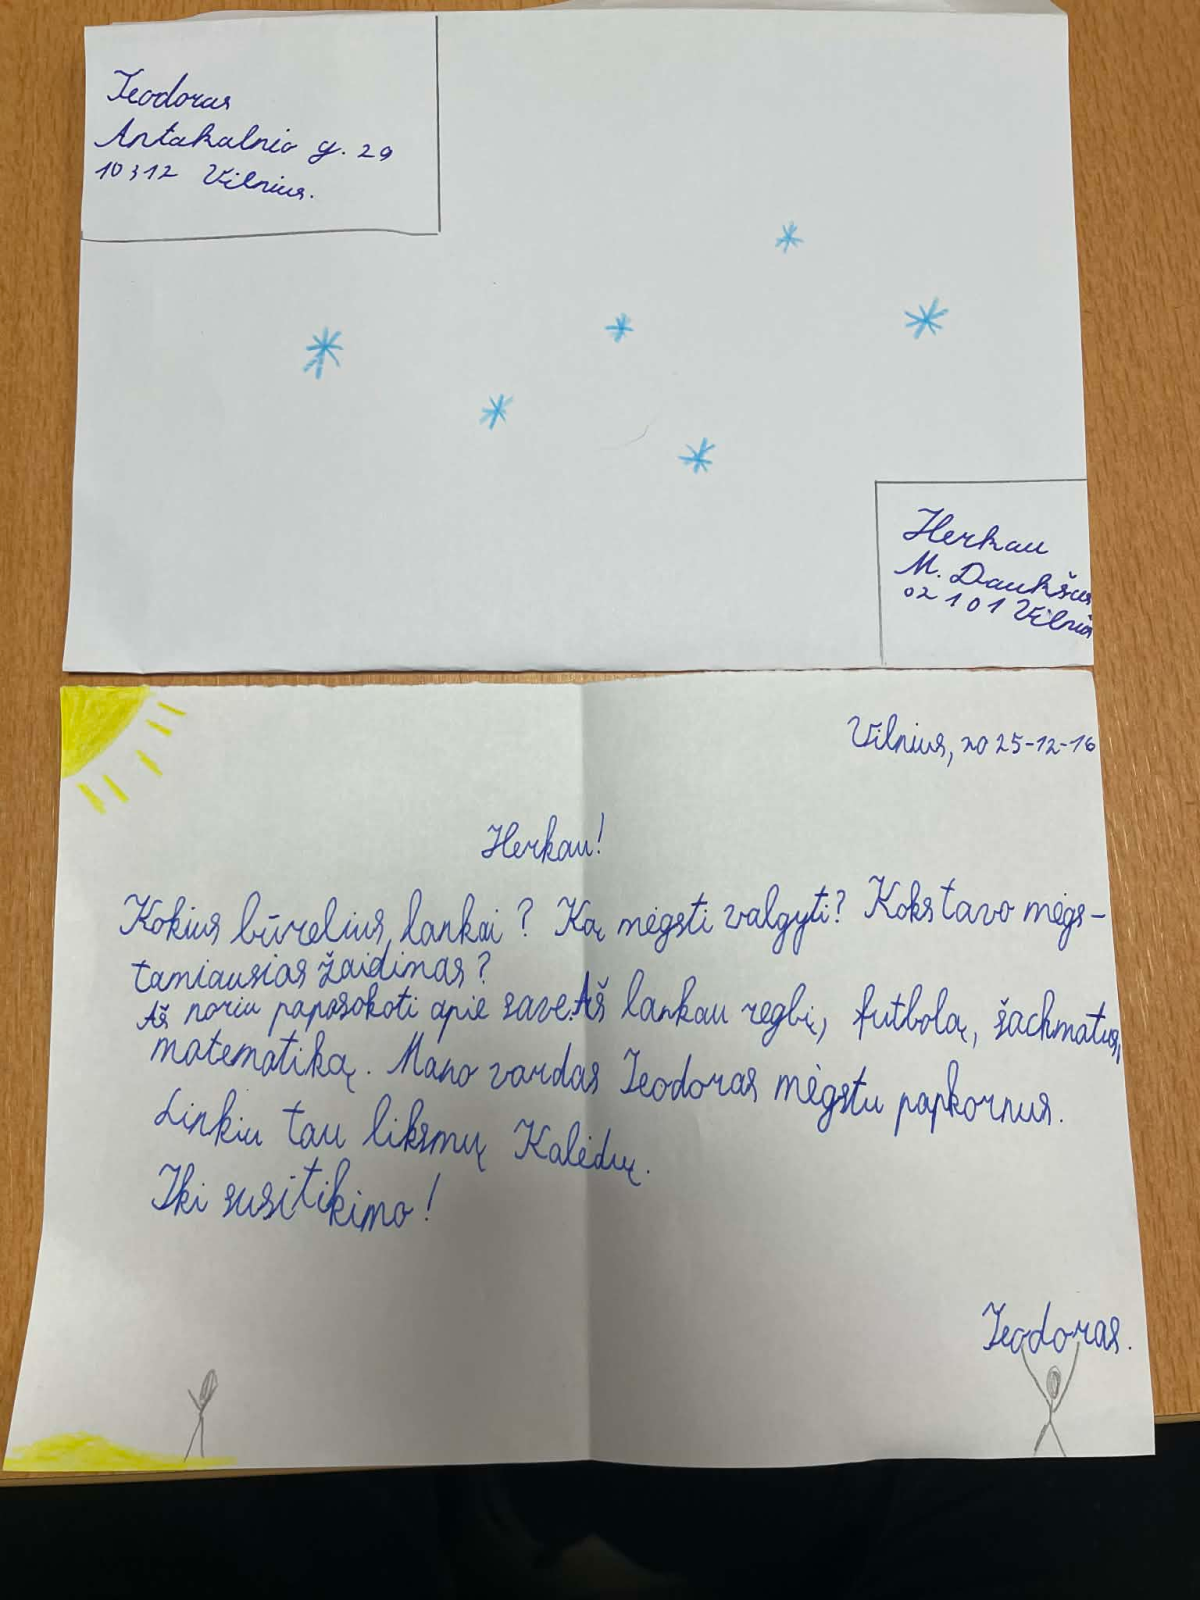 Teodoras
Antakalnio g. 29
10312 Vilnius.
Herkau
M. Daukšus
02101 Vilnius
Vilnius, 2025-12-16
Herkau!
Kokius būrelius lankai? Ką mėgsti valgyti? Koks tavo mėgs-
tamiausias žaidimas?
Aš noriu papasokoti apie save. Aš lankau regbį, futbolą, šachmatus,
matematiką. Mano vardas Teodoras mėgstu papkornus.
Linkiu tau liksmų Kalėdų.
Iki susitikimo!
Teodoras.